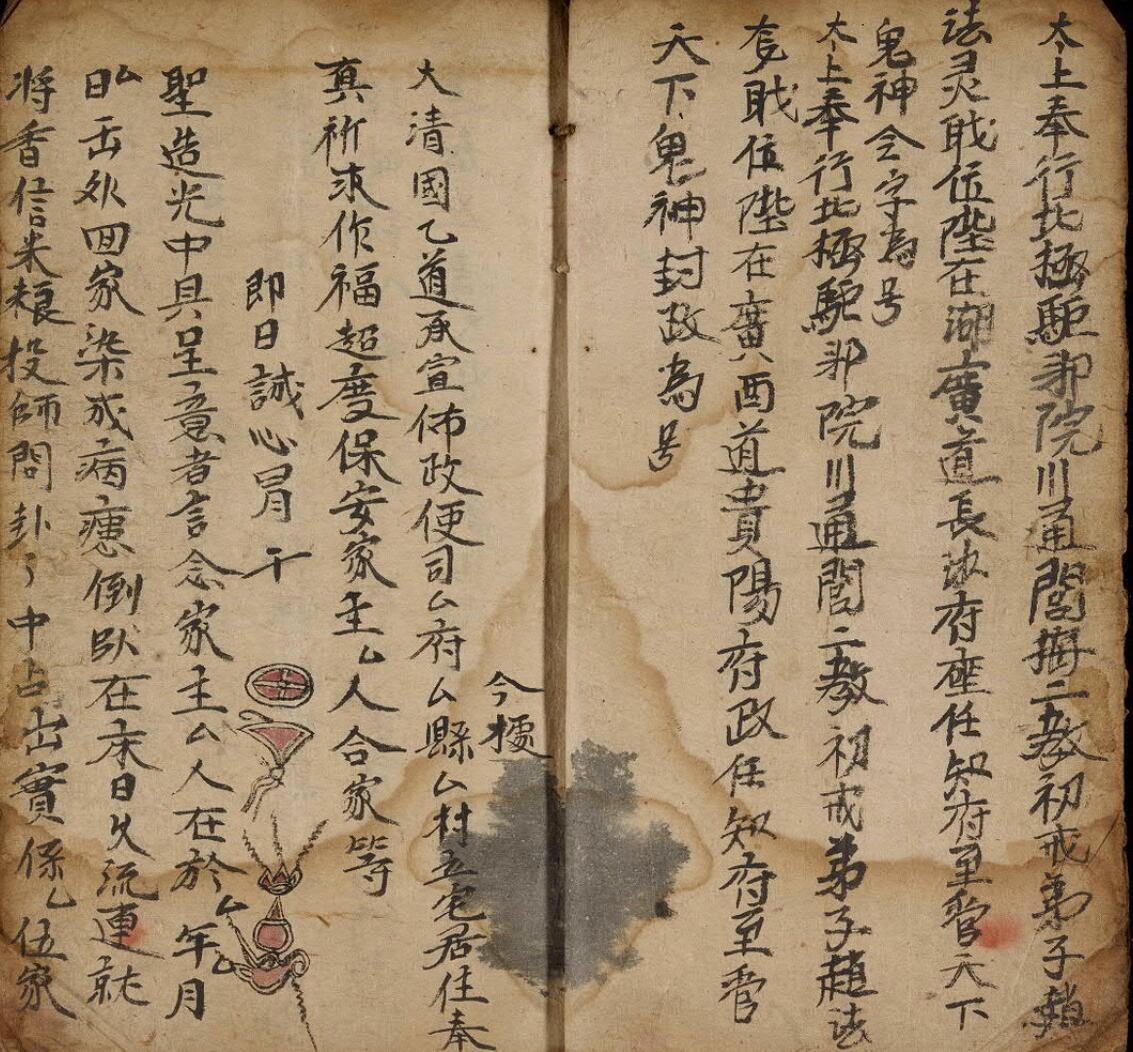 太上奉行北極駈邪院川通閭梅二教初戒弟子趙
法灵戝位陞在湖廣道長沙府座任知府至管天下
鬼神令字為号
太上奉行北極駈邪院川通閭二教初戒弟子趙法
戝位陞在廣西道貴陽府政任知府至管
天下鬼神封政為号
今據
大清國乙道承宣佈政使司厶府厶縣厶村立宅居住奉
真祈求作福超度保安家主厶人合家等
即日誠心冒干
聖造光中具呈意者言念家主厶人在於厶年厶月
厶日缶外回家染成病患倒臥在床日久流連就
将香信米粮投師問卦了中占出實係乙伍家